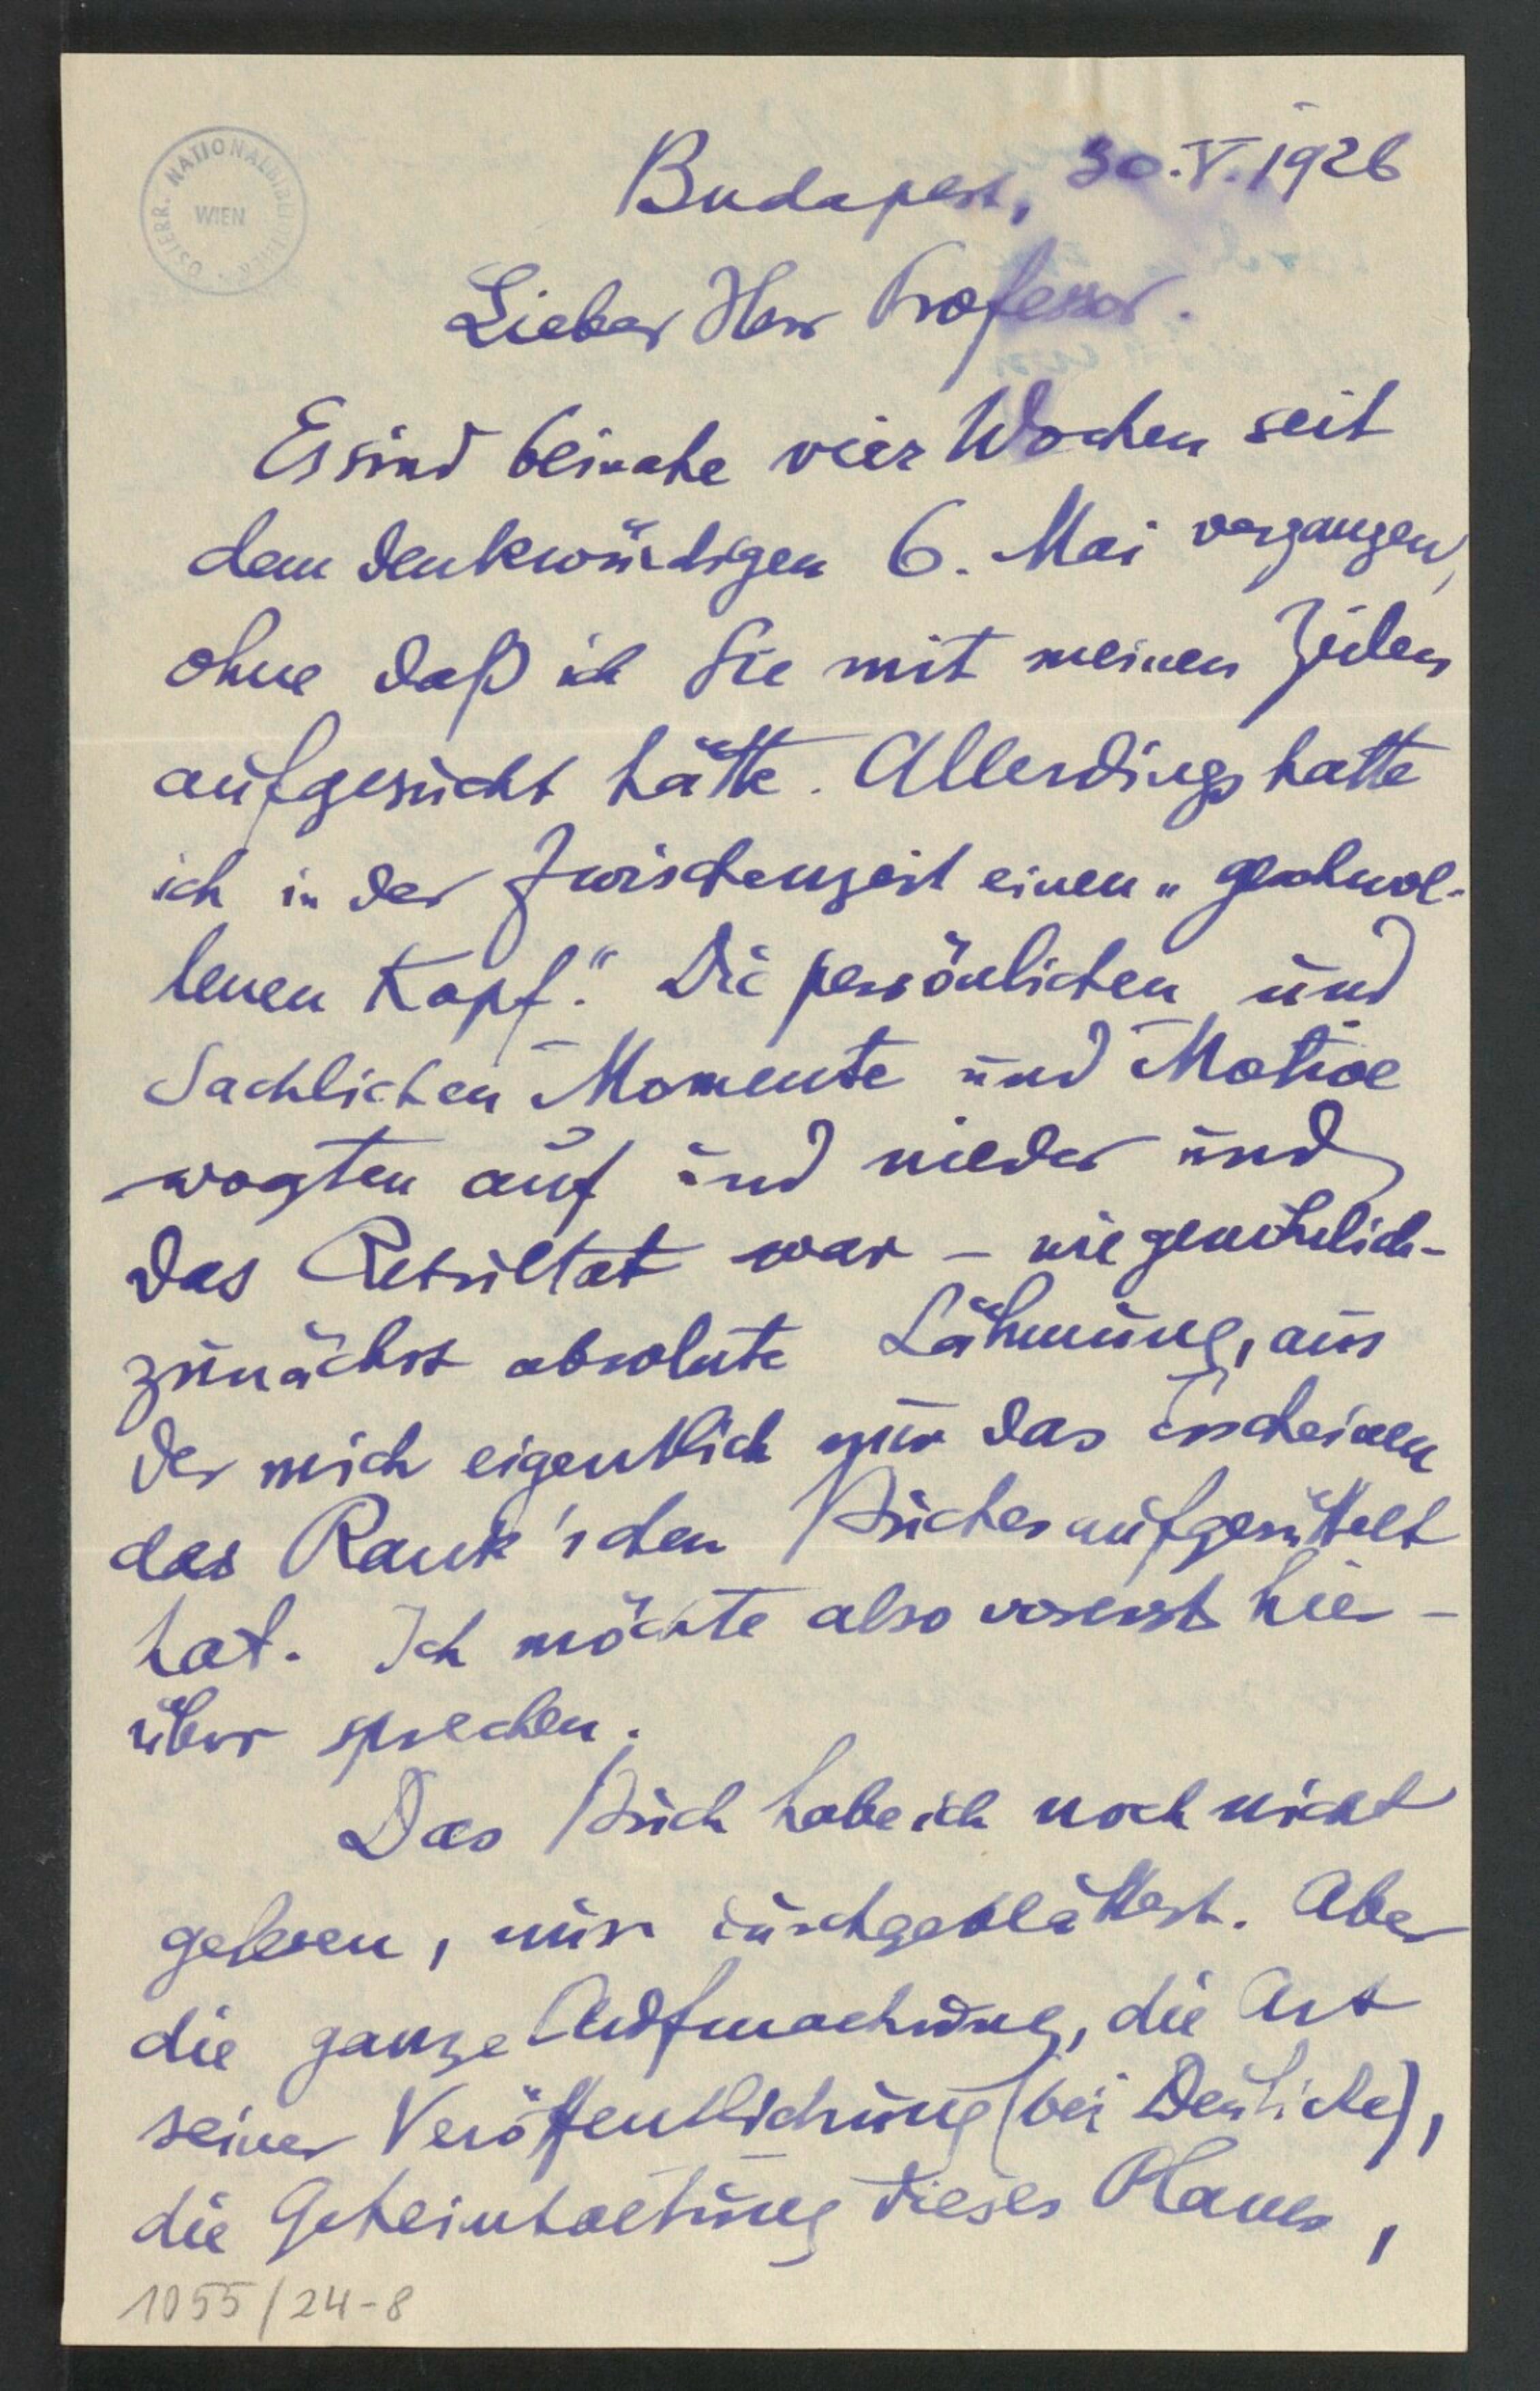 ÖSTERR. NATIONALBIBLIOTHEK
WIEN
Budapest, 30.V.1926
Lieber Herr Professor.
Es sind beinahe vier Wochen seit
dem denkwürdigen 6. Mai vergangen,
ohne daß ich Sie mit meinen Zeilen
aufgesucht hätte. Allerdings hatte
ich in der Zwischenzeit einen „geschwol-
lenen Kopf“. Die persönlichen und
sachlichen Momente und Motive
wogten auf und nieder und
das Resultat war – wie gewöhnlich –
zunächst absolute Lähmung, aus
der mich eigentlich nur das Erscheinen
des Rank'schen Buches aufgerüttelt
hat. Ich möchte also vorerst hie-
rüber sprechen.
Das Buch habe ich noch nicht
gelesen, nur durchgeblättert. Aber
die ganze Aufmachung, die Art
seiner Veröffentlichung (bei Deuticke),
die Geheimhaltung dieses Planes,
1055/24-8